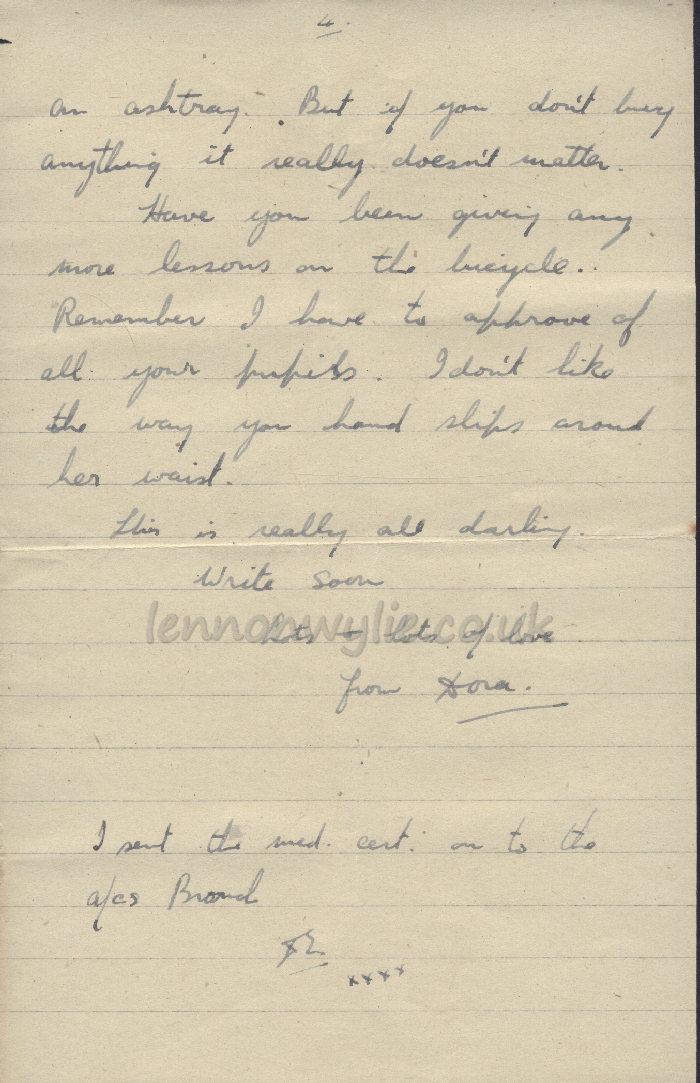 4.
an ashtray. But if you don't buy
anything it really doesn't matter.
Have you been giving any
more lessons on the bicycle..
Remember I have to approve of
all your pupils. I don't like
the way you hand slips around
her waist.
This is really all darling.
Write soon
lennonwylie.co.uk
Lots + lots of love
from Dora.
I sent the med. cert. on to the
a/cs Branch
xxxx